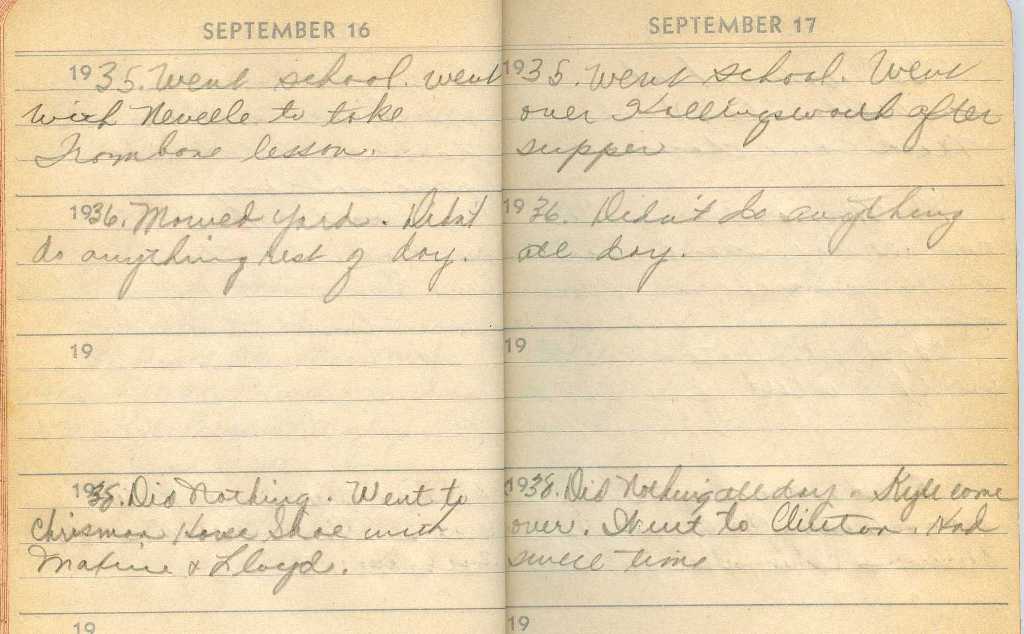 SEPTEMBER 16
1935. Went school. went
with Neville to take
Trombone lesson.
1936. Mowed yard. Didn't
do anything rest of day.
19
1938. Did Nothing. Went to
Chrisman Horse Shoe with
& Lloyd.
19
SEPTEMBER 17
1935. Went school. Went
over Killingsworth after
supper
1936. Didn't do anything
all day.
19
1938. Did Nothing all day. Kyle come
over. Went to Clinton. Had
swell time
19